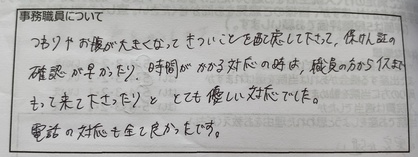 事務職員について
つわりやお腹が大きくなってきついことを配慮して下さって、保けん証の
確認が早かったり、時間がかかる対応の時は、職員の方からイスまで
もって来て下さったりと とても優しい対応でした。
電話の対応も全て良かったです。